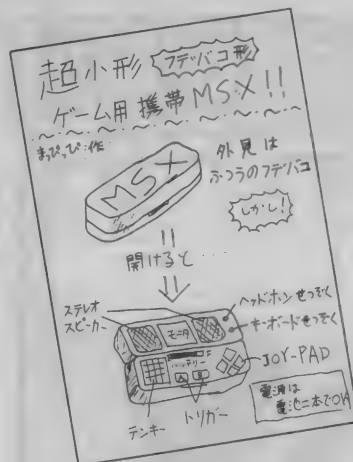 超小形 フデバコ形
ゲーム用 携帯MSX!!
まっぴっぴ・作
MSX
外見は
ふつうのフデバコ
しかし!
開けると…
ステレオ
スピーカー
モニタ
ヘッドホンせつぞく
キーボードせつぞく
E F
バッテリー
A B
JOY-PAD
テンキー
トリガー
電源は
電池二本でOK